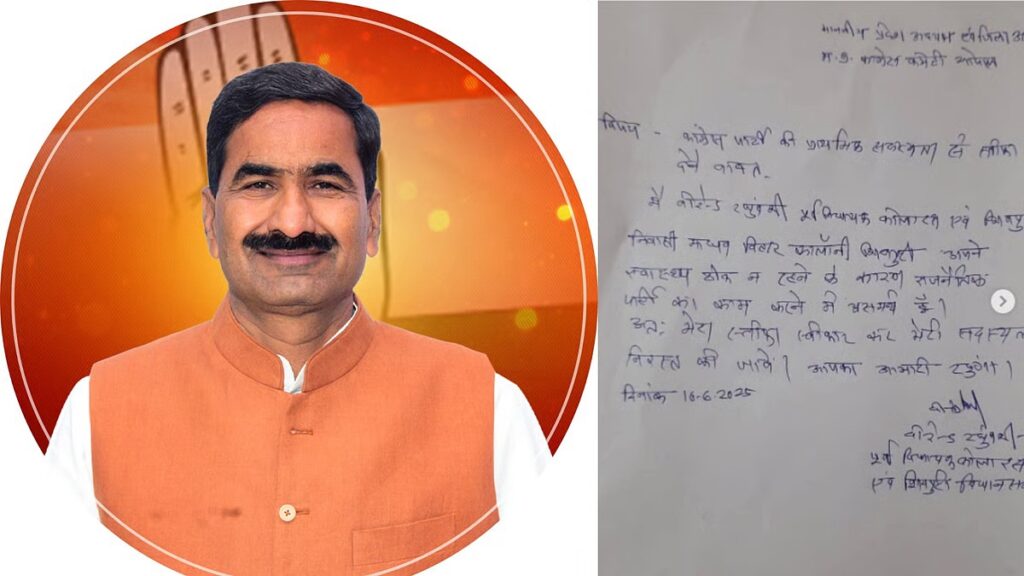 माननीय प्रदेश अध्यक्ष एवं जिला अ
म.प्र. कांग्रेस कमेटी भोपाल
विषय - कांग्रेस पार्टी की प्राथमिक सदस्यता से स्तीफा
देने बावत.
मै वीरेन्द्र रघुवंशी पूर्व विधायक कोलारस एवं शिवपु
निवासी माधव विहार कॉलोनी शिवपुरी अपने
स्वास्थ्य ठीक न रहने के कारण राजनैतिक
पार्टी का काम करने में असमर्थ हूँ।
अतः मेरा स्तीफा स्वीकार कर मेरी सदस्यता
निरस्त की जावें। आपका आभारी रहुंगा।
दिनांक 16.6.2025
वीरेन्द्र रघुवंशी
पूर्व विधायक कोलारस
एवं शिवपुरी विधानस